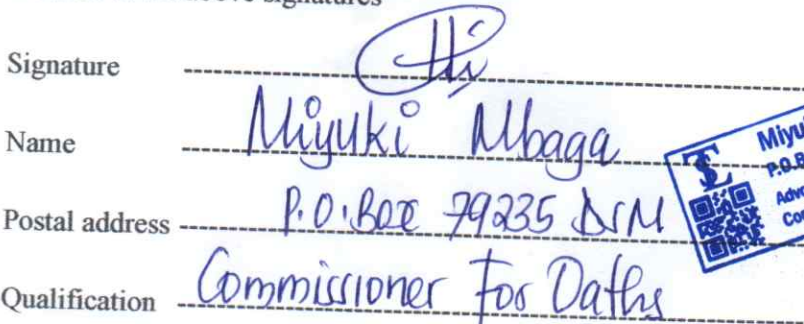 signatures
Signature
Name Miyuki Mbaga
Postal address P.O.Box 79235 DSM
Qualification Commissioner For Oaths
Miyu
P.O.B
Adv
Co